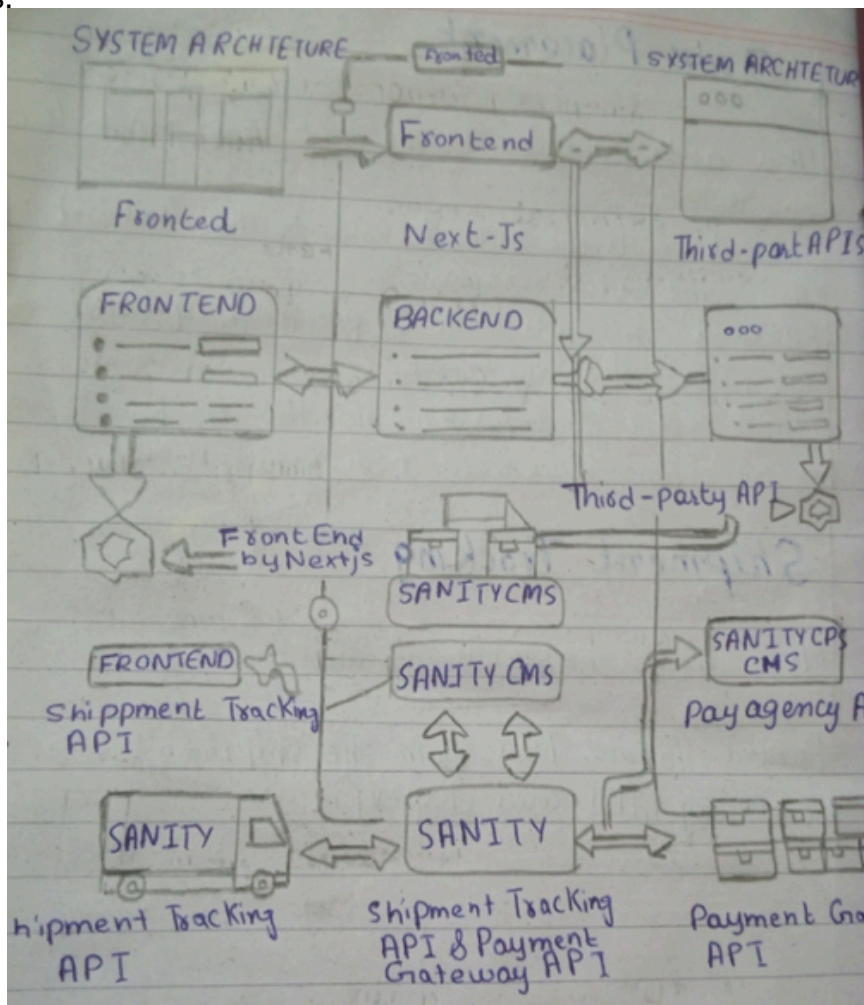 SYSTEM ARCHTETURE
Fronted
SYSTEM ARCHTETUR
Frontend
Fronted
Next-Js
Third-part APIs
FRONTEND
BACKEND
Third-party API
Front End
by Nextjs
SANITY CMS
FRONTEND
SANITY CMS
SANITY CPS
CMS
Shippment Tracking
API
Pay agency
SANITY
SANITY
hipment Tracking
API
Shipment Tracking
API & Payment
Gateway API
Payment Ga
API